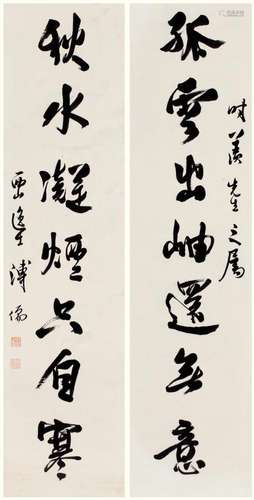 時羨先生之屬
孤雲出岫還無意
秋水凝煙只自寒
西山逸士溥儒